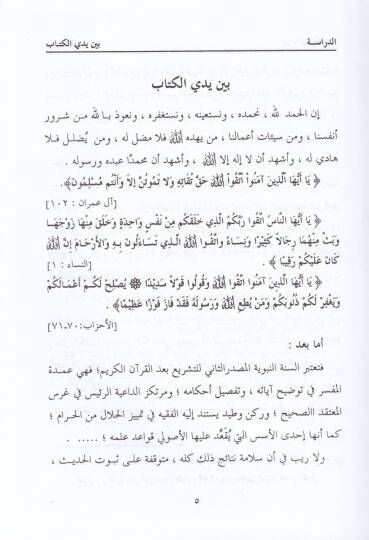 الدراسة
بين يدي الكتاب
بين يدي الكتاب
إن الحمد لله ، نحمده ، ونستعينه ، ونستغفره ، ونعوذ بالله من شرور
أنفسنا ، ومن سيئات أعمالنا ، من يهده الله فلا مضل له ، ومن يُضلل فلا
هادي له ، وأشهد أن لا إله إلا الله ، وأشهد أن محمدًا عبده ورسوله .
﴿ يَا أَيُّهَا الَّذِينَ آمَنُواْ اتَّقُواْ اللَّهَ حَقَّ تُقَاتِهِ وَلَا تَمُوتُنَّ إِلَّا وَأَنتُم مُّسْلِمُونَ﴾.
[آل عمران : ١٠٢]
﴿ يَا أَيُّهَا النَّاسُ اتَّقُوا رَبَّكُمُ الَّذِي خَلَقَكُم مِّن نَّفْسٍ وَاحِدَةٍ وَخَلَقَ مِنْهَا زَوْجَهَا
وَبَثَّ مِنْهُمَا رِجَالاً كَثِيرًا وَنِسَاءً وَاتَّقُوا اللَّهَ الَّذِي تَسَاءَلُونَ بِهِ وَالْأَرْحَامَ إِنَّ اللَّهَ
كَانَ عَلَيْكُمْ رَقِيبًا ﴾ .
[النساء : ١]
﴿ يَا أَيُّهَا الَّذِينَ آمَنُوا اتَّقُوا اللَّهَ وَقُولُوا قَوْلاً سَدِيدًا ۞ يُصْلِحْ لَكُمْ أَعْمَالَكُمْ
وَيَغْفِرْ لَكُمْ ذُنُوبَكُمْ وَمَن يُطِعِ اللَّهَ وَرَسُولَهُ فَقَدْ فَازَ فَوْزًا عَظِيمًا﴾ .
[الأحزاب:٧٠-٧١]
أما بعد :
فتعتبر السنة النبوية المصدرالثاني للتشريع بعد القرآن الكريم؛ فهي عمدة
المفسر في توضيح آياته ، وتفصيل أحكامه ؛ ومرتكز الداعية الرئيس في غرس
المعتقد االصحيح ؛ وركن وطيد يستند إليه الفقيه في تمييز الحلال من الحرام ؛
كما أنها إحدى الأسس التي يُقَعِّد عليها الأصولي قواعد علمه ؛ ..... .
ولا ريب في أن سلامة نتائج ذلك كله ، متوقفة على ثبوت الحديث ،
٥